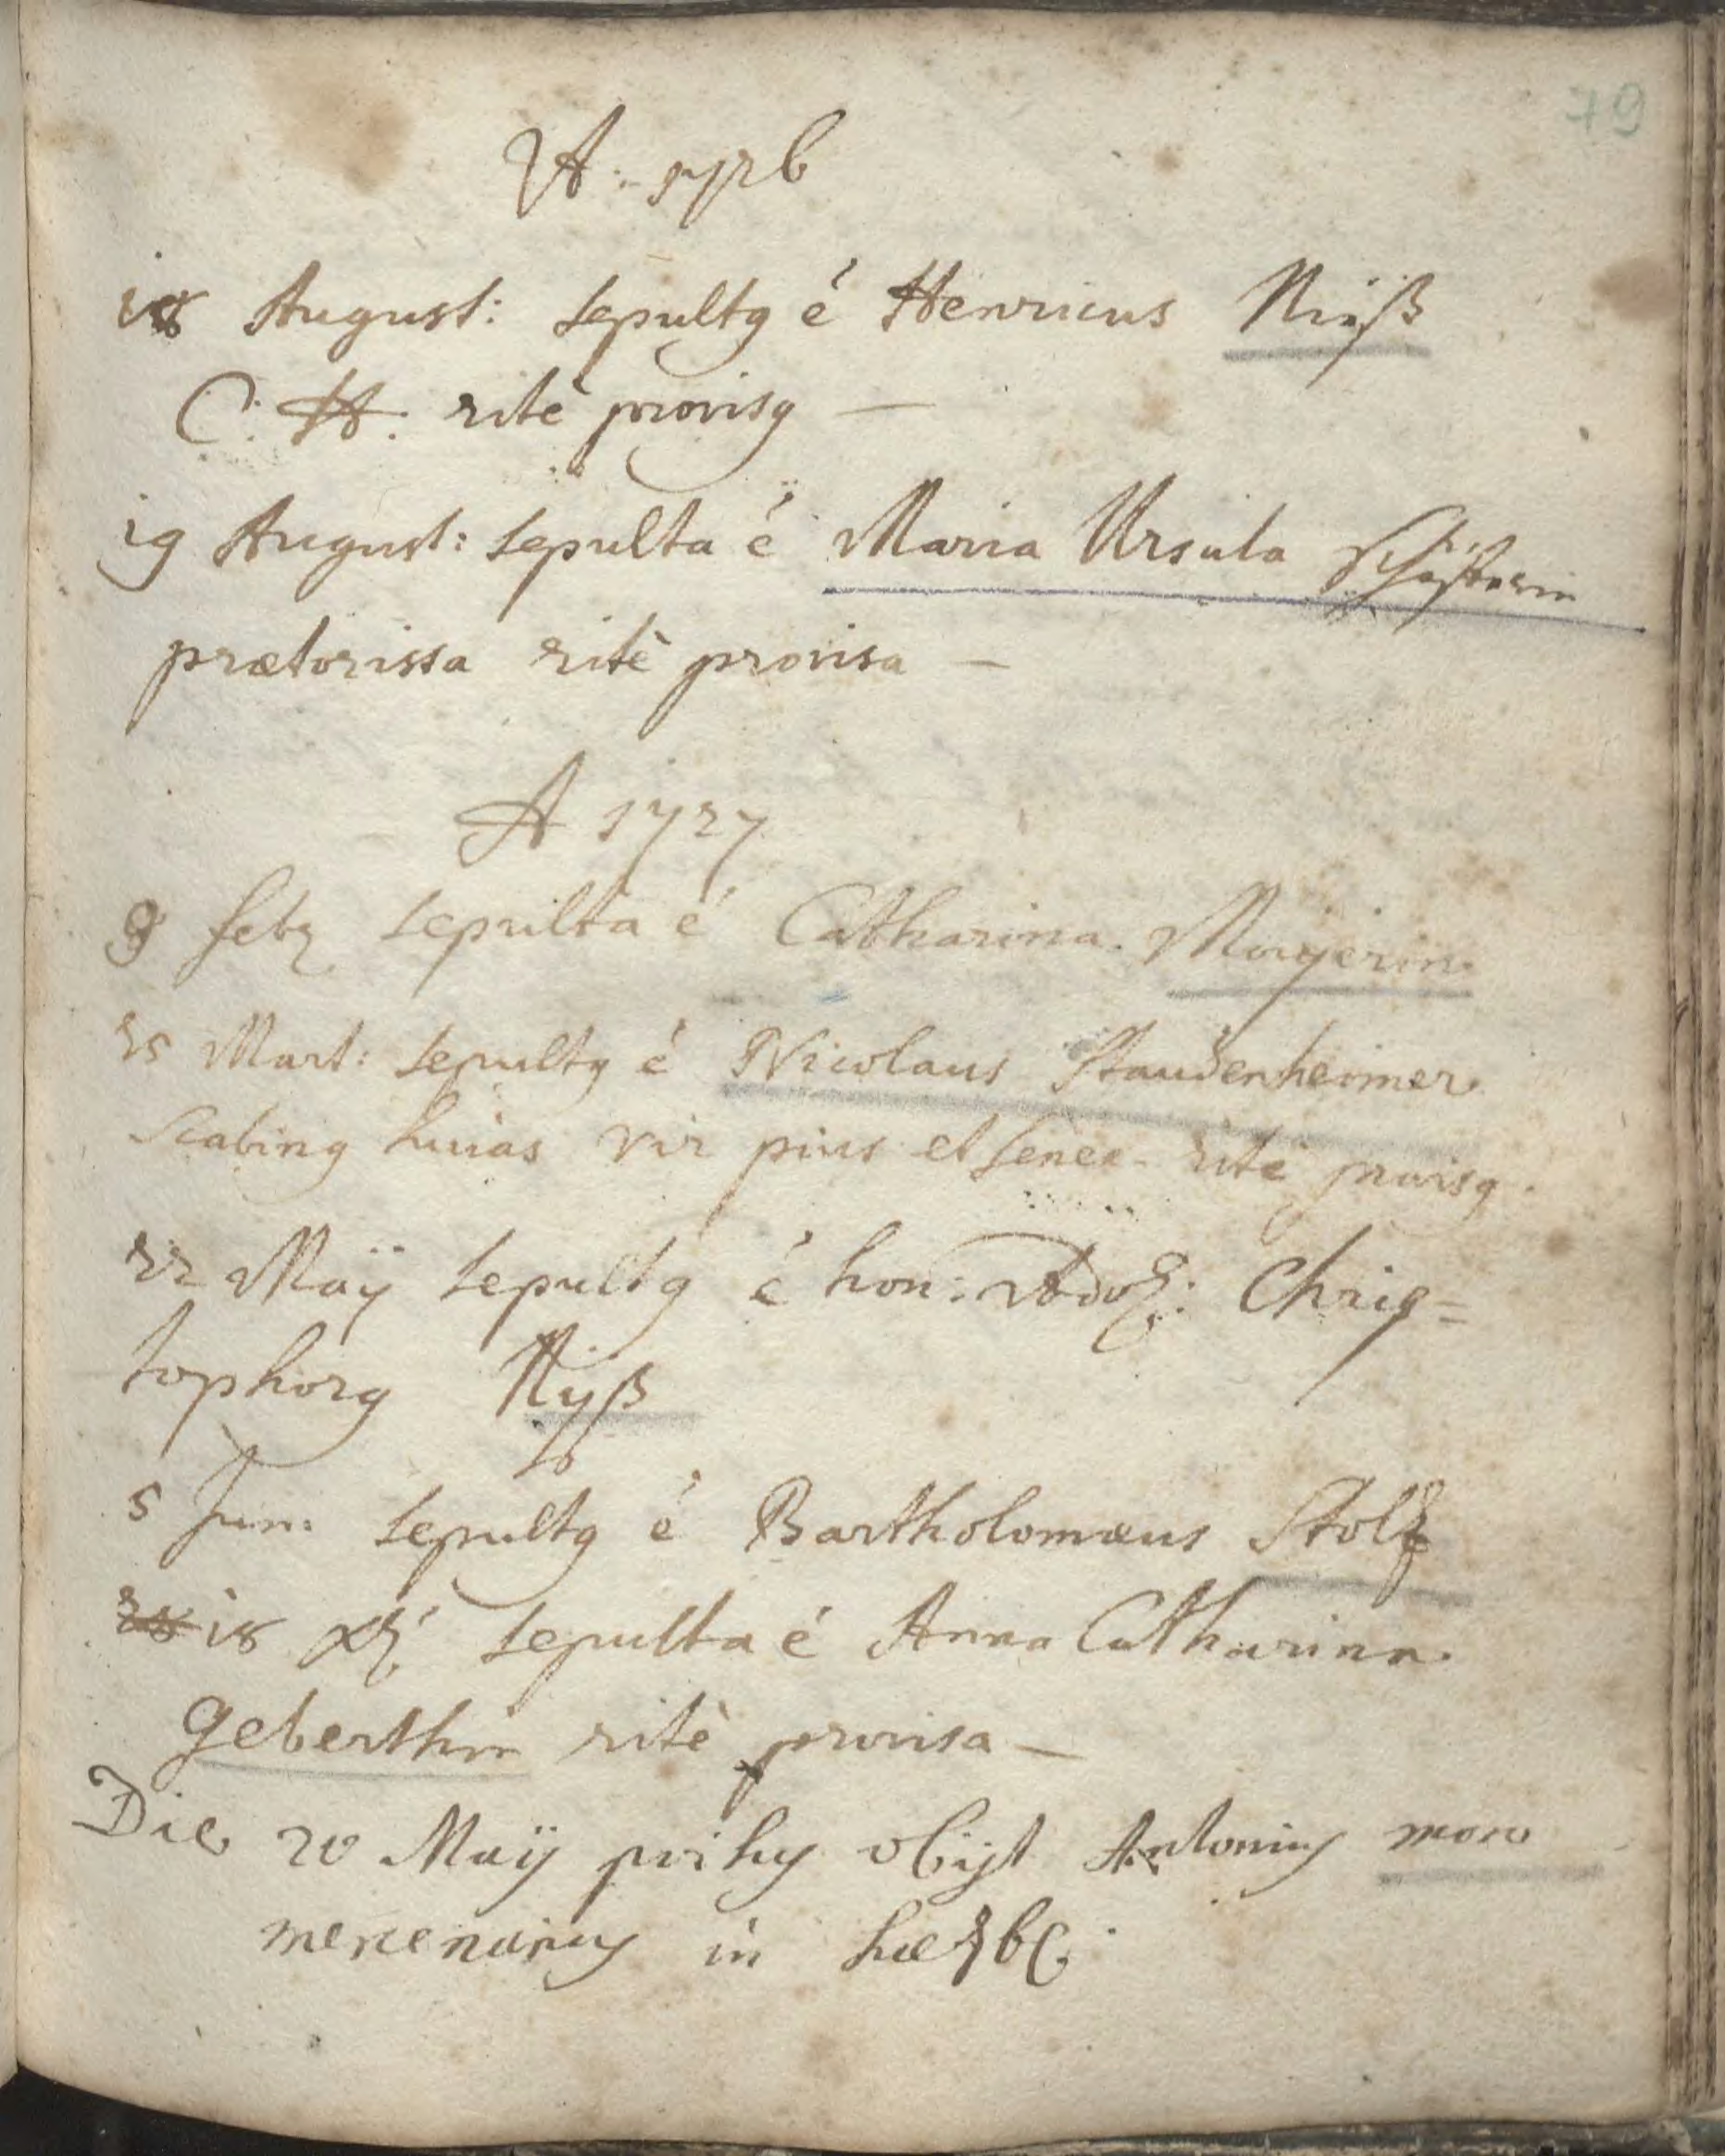 79
A: 1726
18 August: sepultq é Henricus Nüß
C. H. ritè provisq —
19 August: sepulta é Maria Ursula Schäfferin
prætorissa ritè provisa —
A 1727
9 febr sepulta é Catharina Mayerin
25 Mart: sepultq é Nicolaus Staudenheimer
Scabinq huias vir pius et senex ritè provisq.
22 Maÿ sepultq é hon: Adol: Chris=
tophorq Nÿß
5 Jun: sepultq é Bartholomæus Stolz
28 18 Xbr sepulta é Anna Catharina
Geberthin ritè provisa —
Die 20 Maÿ obijt Antonius
mercenarius in